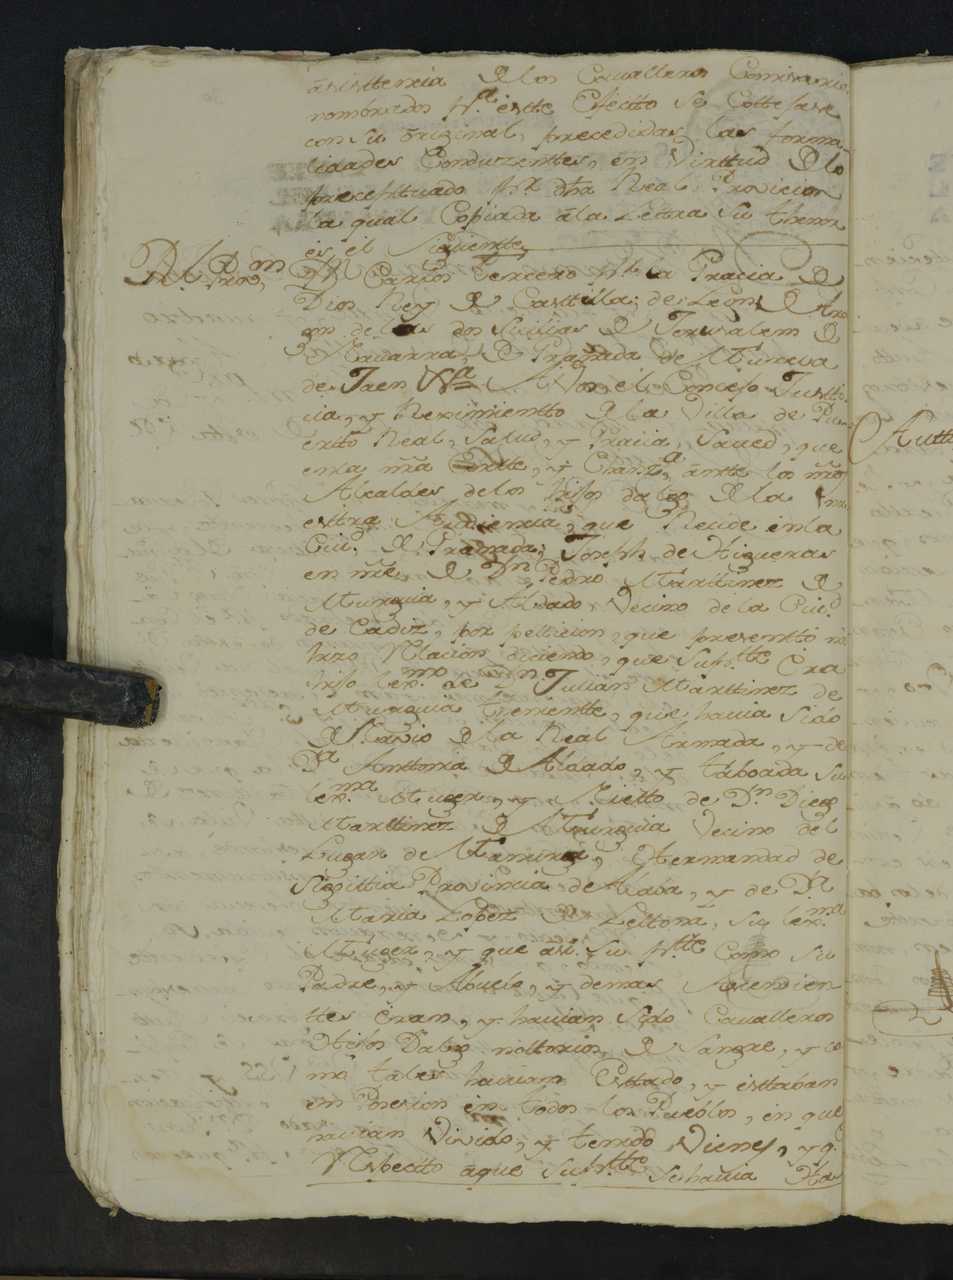 asistencia de los Cavalleros Comisario
nombrados pª este Efecto se Cottejase
con su original, precedidas las forma
lidades Conduzenttes, en Virttud de lo
preceptuado pr dha Real Provicion
la qual Copiada a la Letra su thenor
es el Siguiente
Rl Provon
Dn Carlos Tercero por la Gracia de
Dios Rey de Casttilla, de Leon, de Ara
gon de las dos Sicilias de Jerusalem de
Navarra, de Granada de Murcia
de Jaen &ª A Vos el Concejo Justti
cia, y Reximientto de la Villa de Pu
ertto Real, Salud, y Gracia, Saved, que
en la nra Cortte, y Chanzª antte los nros
Alcaldes de los hijos dalgo de la nu
esttra Audiencia, que Recide en la
Ciud de Granada, Joseph de Higueras
en nre de Dn Pedro Marttinez de
Murguia, y Aldado, Vecino de la Ciud
de Cadiz, por petticion, que presenttó nos
hizo Relacion diciendo, que su ptte era
hijo lexmo de Dn Julian Marttinez de
Murguia Thenientte, que havia sido
de Navio de la Real Armada, y de
Dª Anttonia de Aldado, y taboada su
lexma Muger, y Nietto de Dn Diego
Marttinez de Murguia Vecino del
Lugar de Manurga, Hermandad de
Sigittia Provincia de Alava, y de Dª
Maria Lopez de Lettona, su lexma
Muger, y que asi su ptte Como su
Padre, y Abuelo, y demas Asendien
ttes eran, y havian sido Cavalleros
Hijos Dalgo nottorios, de Sangre, y co
mo tales havian Esttado, y esttaban
en Posesion en todos los Pueblos, en que
havian Vivido, y tenido Vienes, y q.
Respectto a que su ptte se havia